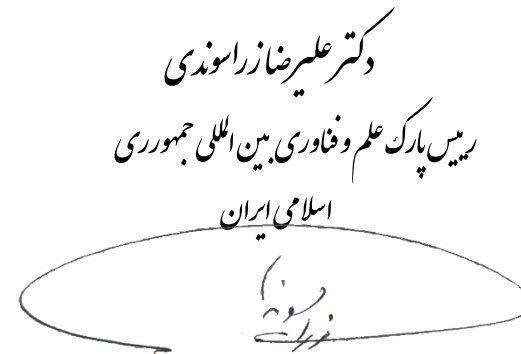 دکتر علیرضا زراسوندی
رییس پارک علم و فناوری بین المللی جمهورری
اسلامی ایران